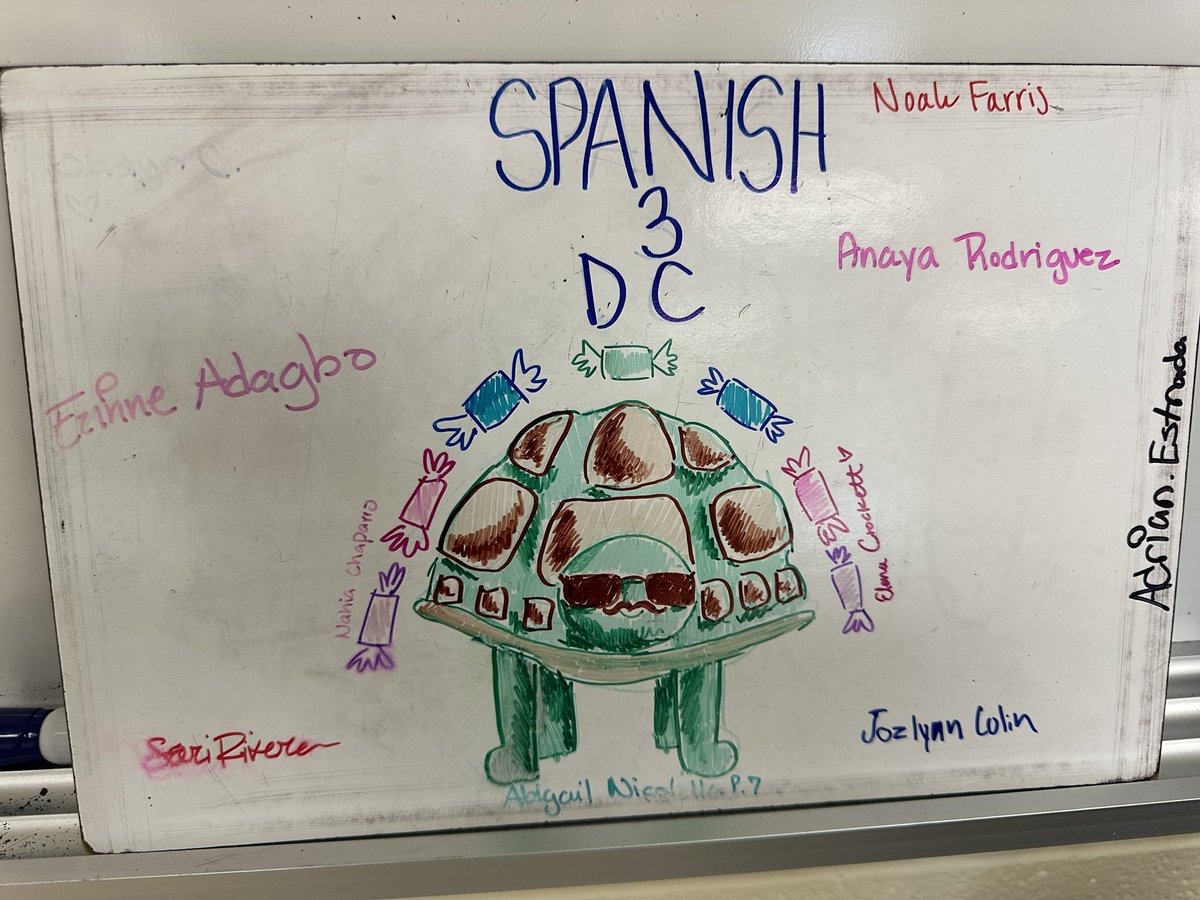 SPANISH
3
DC
Noah Farris
Anaya Rodriguez
Ezinne Adagbo
Adrian. Estrada
Nahia Chaparro
Elena Crockett
Sari Rivera
Jozlynn Colin
Abigail P.7